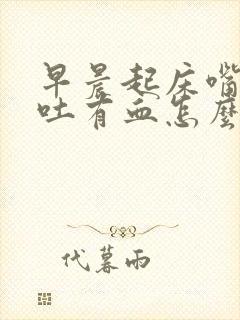 早晨起床嘴
吐有血怎麼
代暮雨